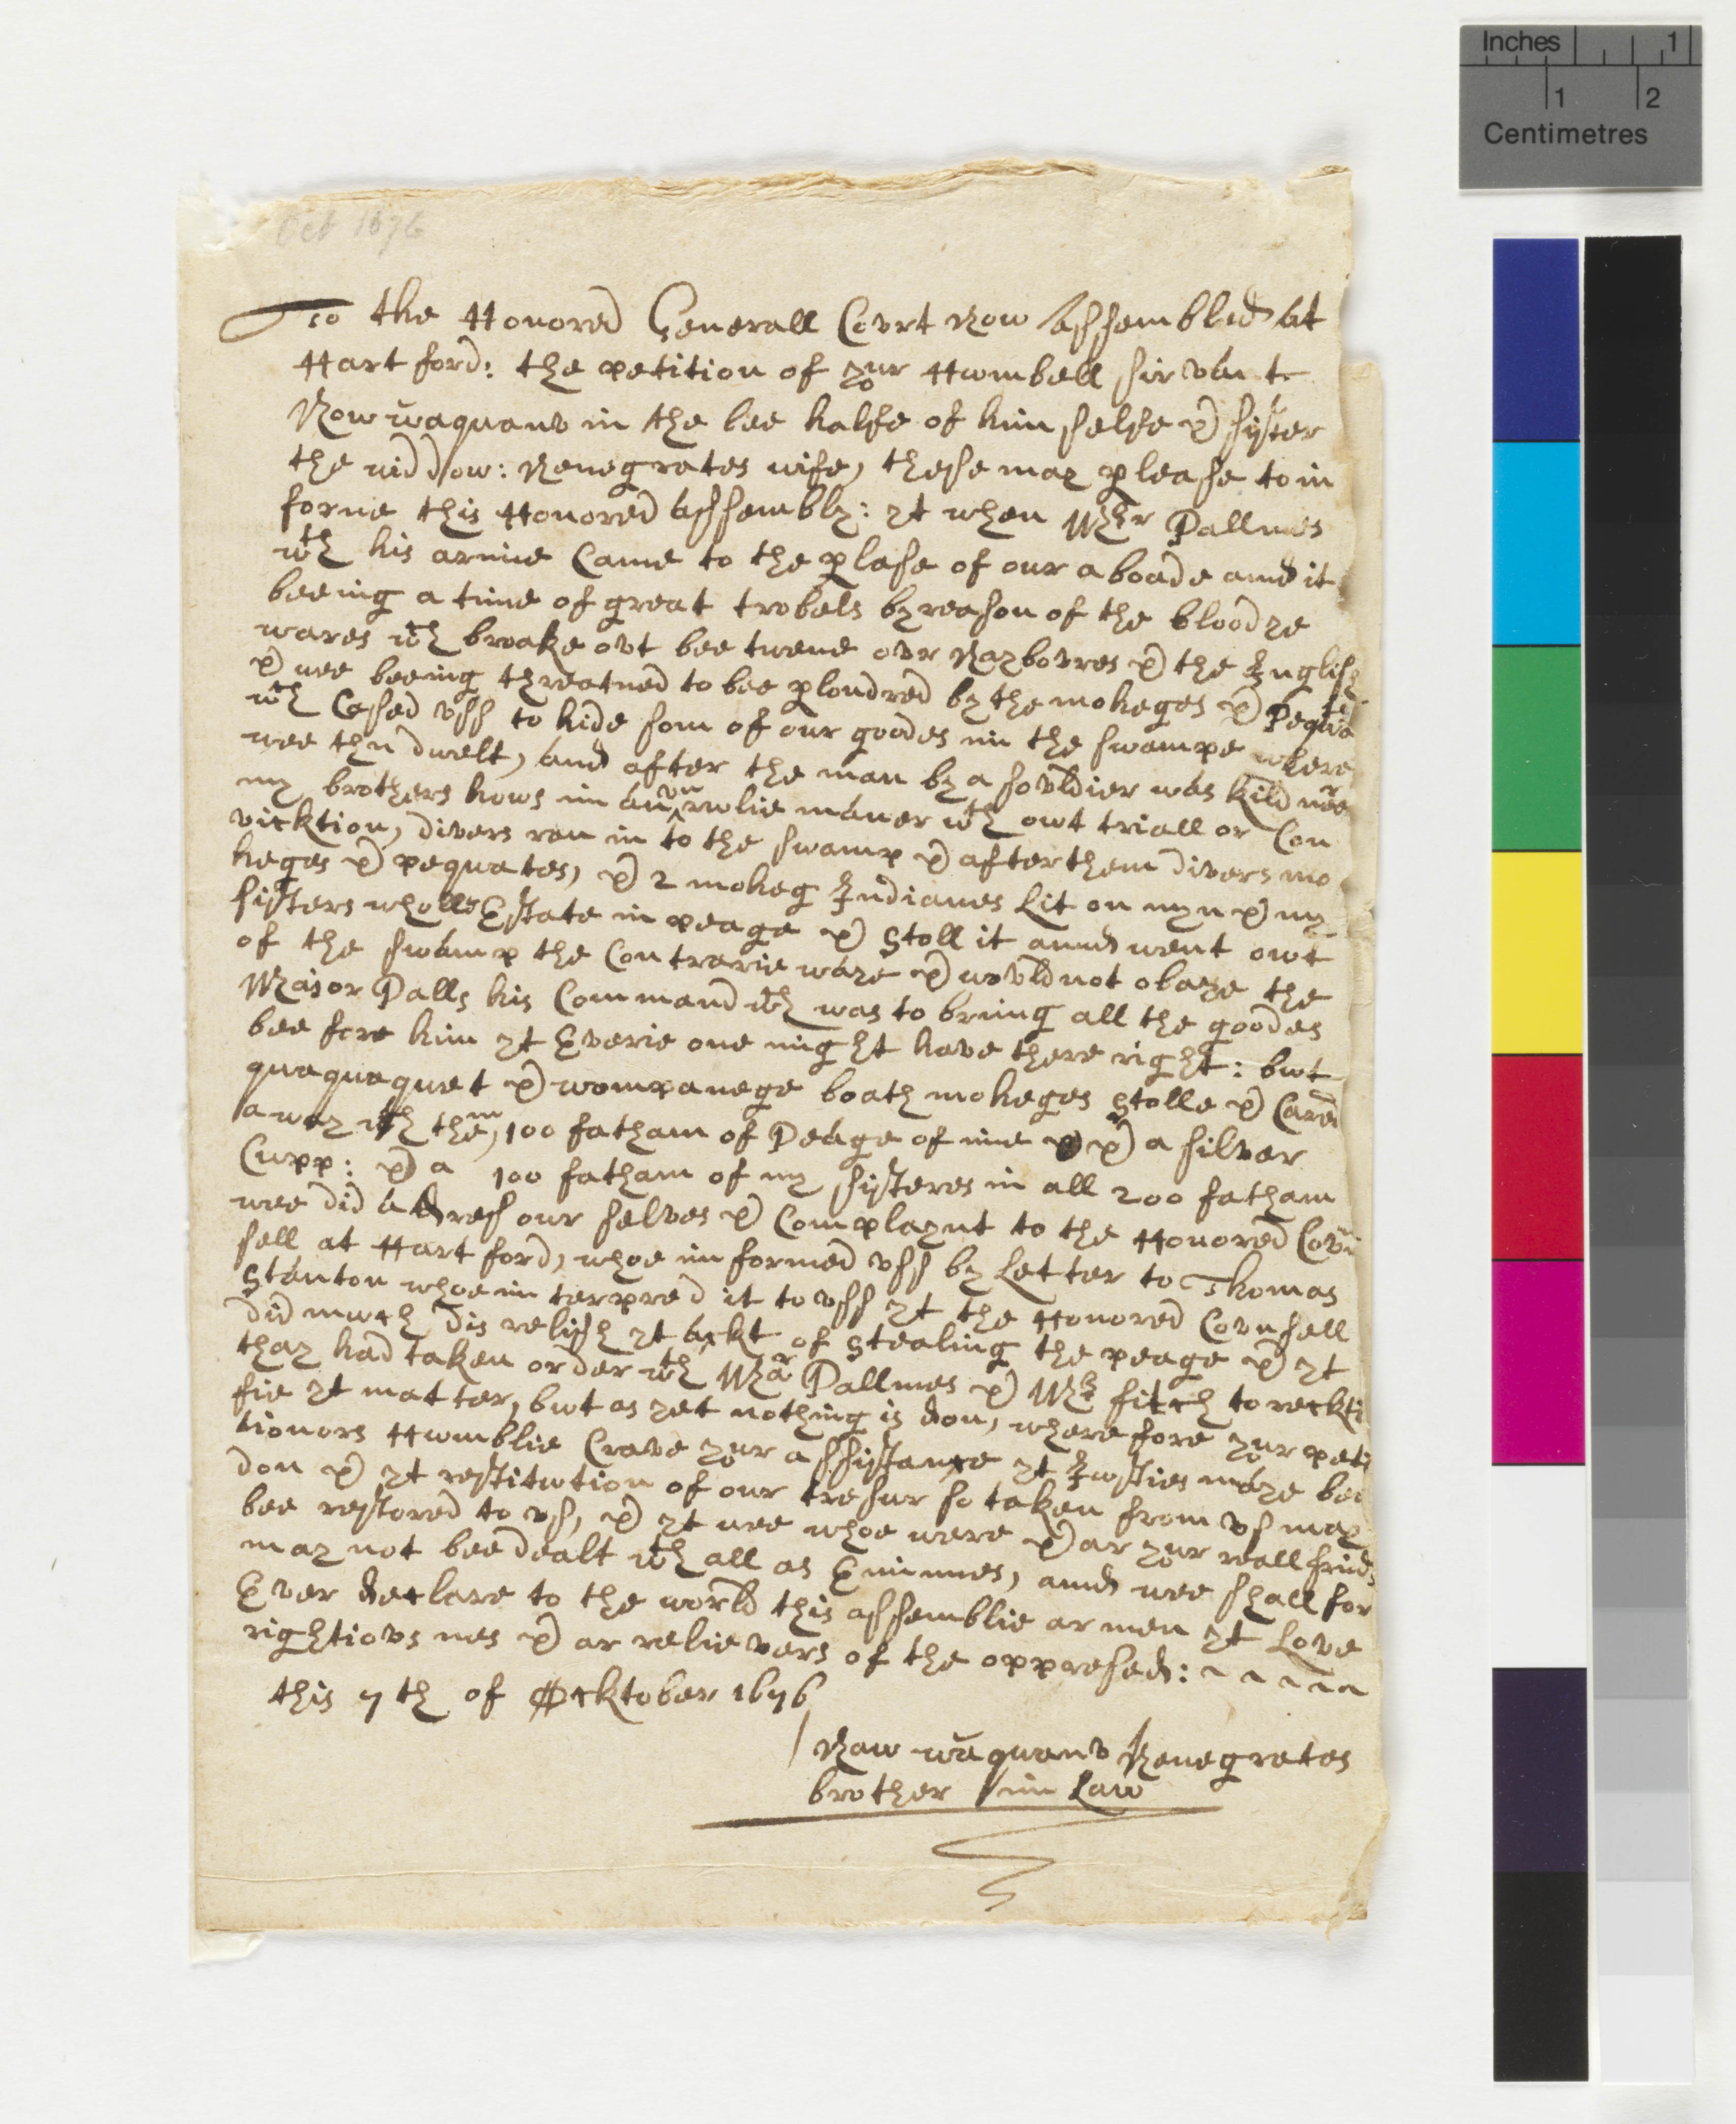 Oct 1676
To the Honored Generall Court Now assembled at
Hartford: the petition of yor Humbell sirvant
Nowwaquanu in the bee halfe of him selfe & sister
the widdow: Nenegrates wife, these may please to in
forme this Honored assembly: yt when Mr Pallmes
wth his armie Came to the plase of our aboade and it
beeing a time of great trobels by reason of the bloodye
wares wch broake out bee twene our Naybovres & the Inglish
& wee beeing threatned to bee plondred by the moheges &
wch Cased uss to hide som of our goodes in the swampe where
wee thn dwelt, and after the man by a souldier was kild nere
my brothers hows in an unrulie maner wth owt triall or Con
vicktion, divers ran in to the swamp & after them divers mo
heges & pequates, & 2 moheg Indianes Lit on myn & my
sisters wholle Estate in peage & stoll it and went owt
of the swamp the Contrarie waye & would not obaye the
Major Palls his Command wch was to bring all the goodes
bee fore him yt Everie one might have there right: but
quaquaquet & wompanege boath moheges stolle & Cared
away wth them, 100 fatham of Peage of mine & a silver
Cupp: & a 100 fatham of my sisteres in all 200 fatham
wee did adress our selves & Complaynt to the Honored Coun
sell at Hartford, whoe in formed uss by Letter to Thomas
Stanton whoe in terpred it to uss yt the Honored Counsell
did mutch dis relish yt ackt of stealing the peage & yt
thay had taken order wth Mar Pallmes & Mr fitch to reckti
fie yt matter, but as yet nothing is don, wherefore yor peti
tionors Humblie Crave yor assistance yt Justies maye bee
don & yt restitution of our tresur so taken from us may
bee restored to us, & yt wee whoe were & ar yor reall frinds
may not bee dealt wth all as Enimmes, and wee shall for
Ever declare to the world this assemblie ar men yt Love
rightious nes & ar relievers of the oppressed: ~ ~ ~ ~ ~
this 7th of Ocktober 1676
Naw waquanu Nenegrates
brother in Law
Inches 1
1 2
Centimetres